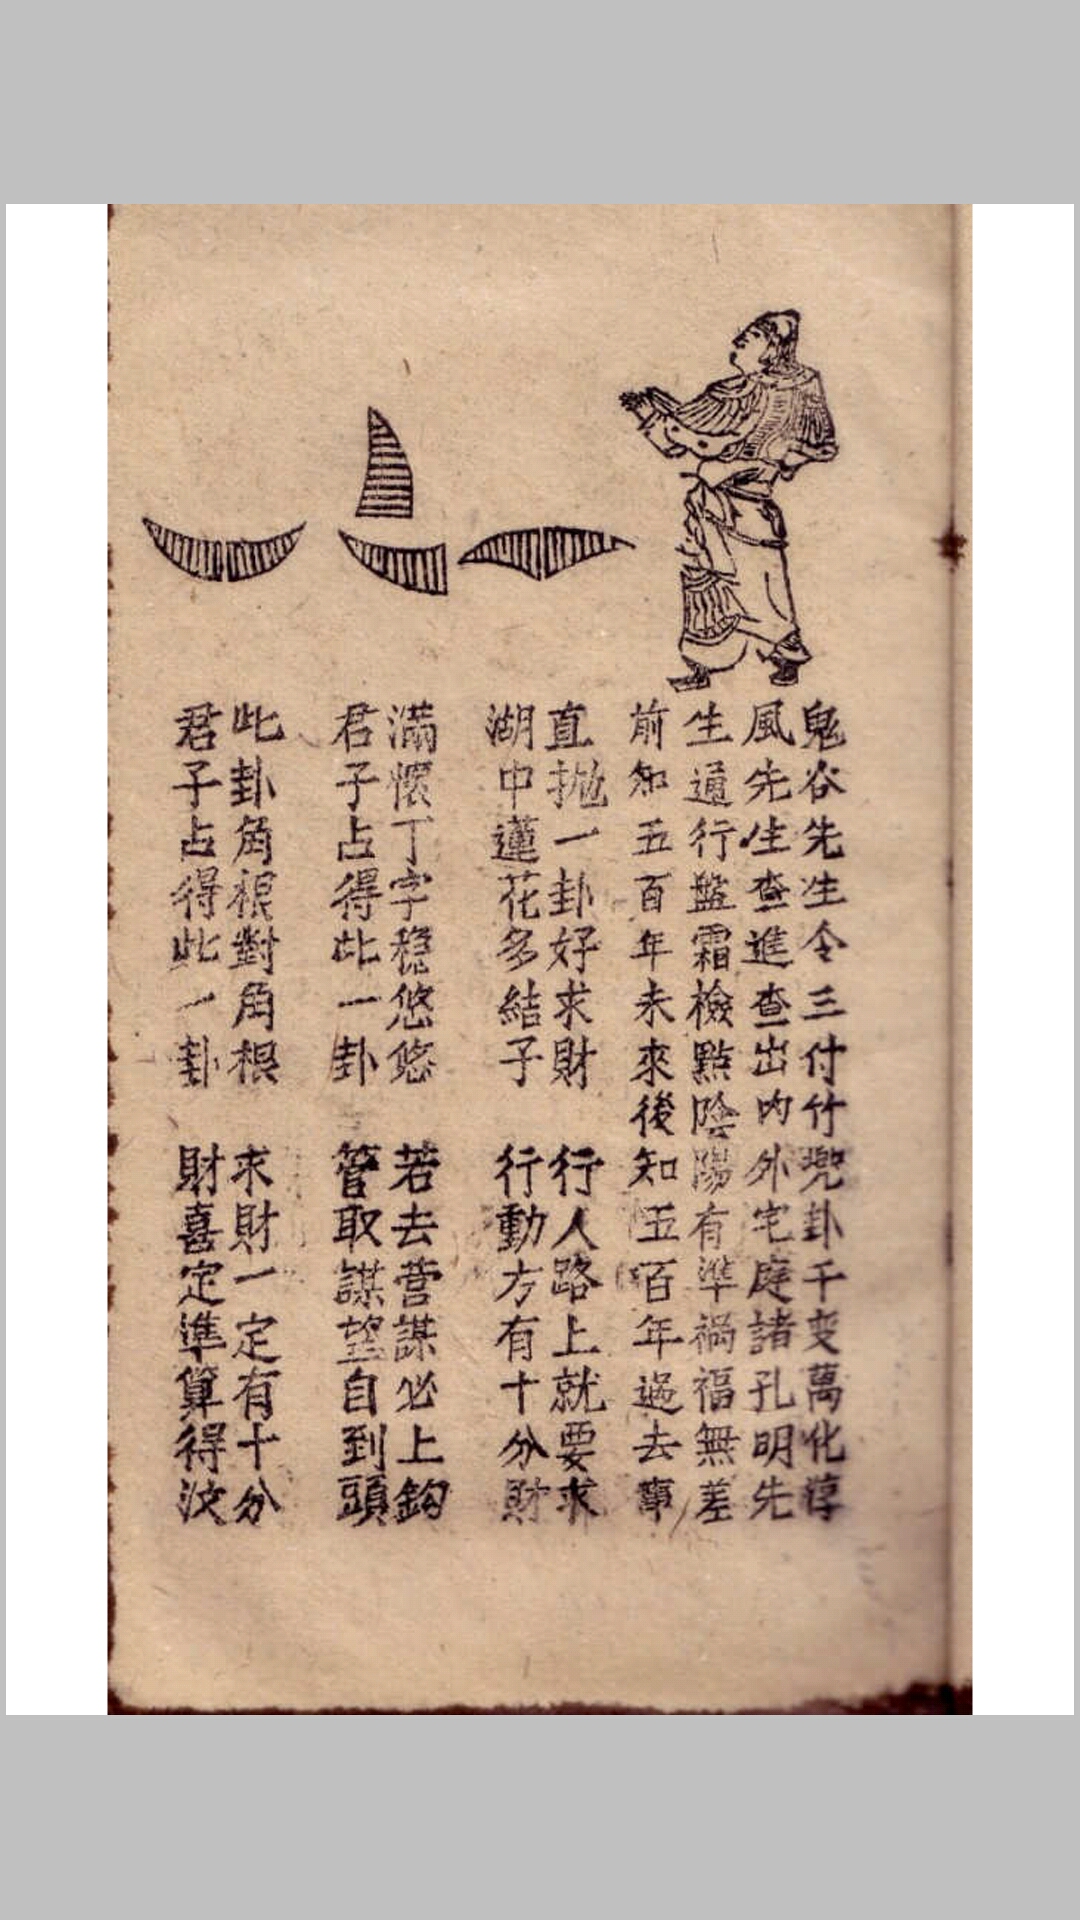 鬼谷先生令三付竹兜卦千变萬化淳
風先生查進查出内外宅庭諸孔明先
生通行盤霜檢點陰陽有準禍福無差
前知五百年未來後知五百年過去事
直拋一卦好求財 行人路上就要求
湖中蓮花多結子 行動方有十分財
滿懷丁字稳悠悠 若去营謀必上鈎
君子占得此一卦 管取謀望自到頭
此卦角根對角根 求財一定有十分
君子占得此一卦 財喜定準算得